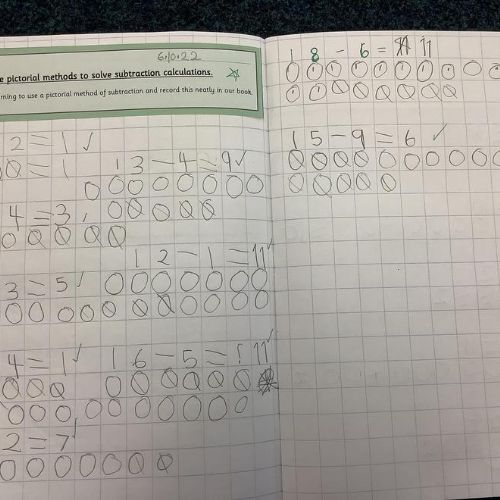 6.10.22
e pictorial methods to solve subtraction calculations.
rning to use a pictorial method of subtraction and record this neatly in our book.
2 = 1 ✓
= 1
13 - 4 = 9 ✓
4 = 3
12 - 1 = 11 ✓
3 = 5 ✓
4 = 1 ✓
16 - 5 = 11 ✓
2 = 7
18 - 6 = 11
15 - 9 = 6 ✓